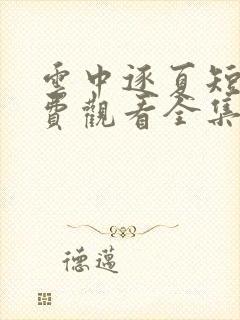 雲中逐夏短
費觀看全集
德邁